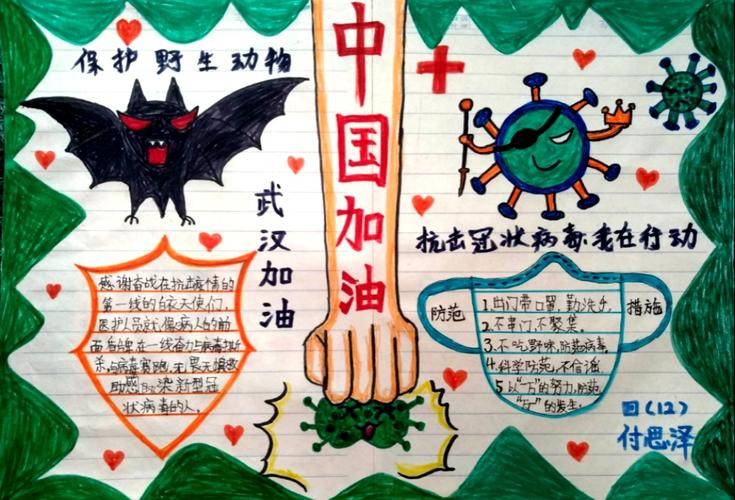 保护野生动物
中国加油
武汉加油
抗击冠状病毒·我在行动
感谢奋战在抗击疫情的
第一线的白衣天使们,
医护人员就像病人们的前
面盾牌,在一线奋力与病毒拼
杀,与病毒赛跑,无畏无惧救
助感染新型冠
状病毒的人。
防范
措施
1.出门带口罩,勤洗手,
2.不串门,不聚集。
3.不吃野味,防范病毒,
4.科学防范,不信谣
5.以“万”的努力,防范
“万一”的发生。
四(12)
付思泽